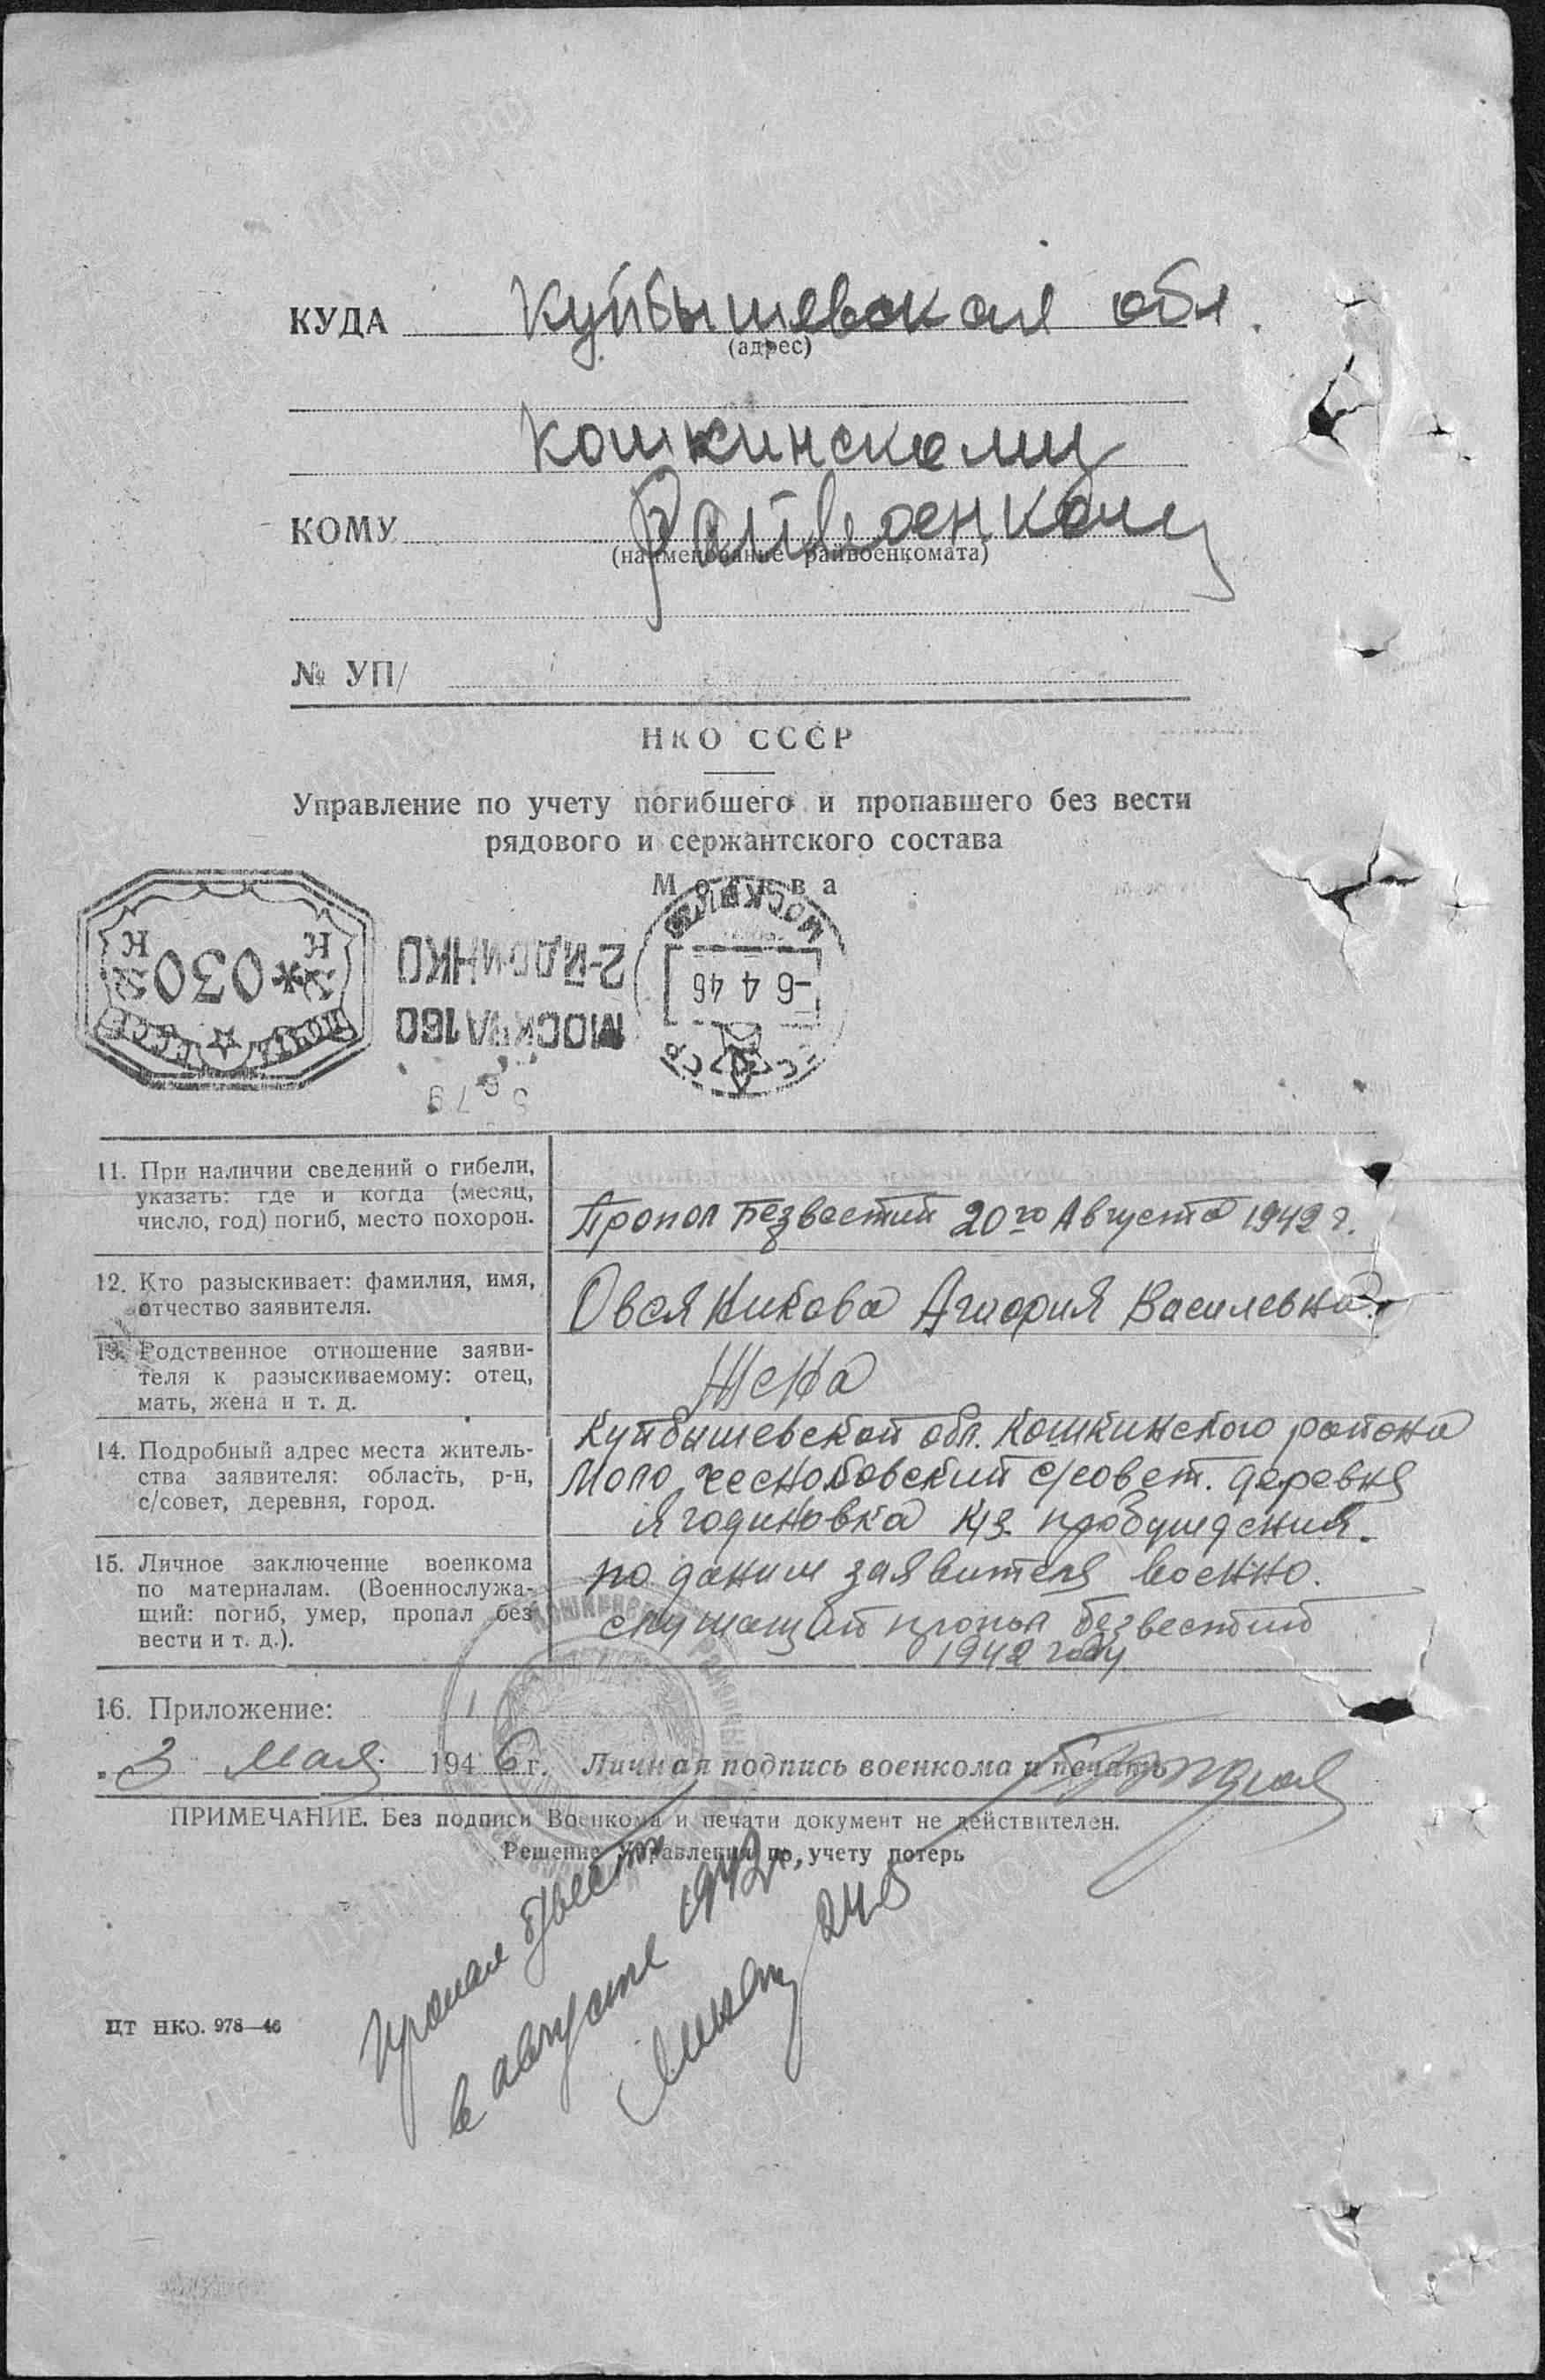 КУДА Куйбышевская обл.
(адрес)
Кошкинскому
КОМУ Райвоенкому
(наименование райвоенкомата)
№ УП/
НКО СССР
Управление по учету погибшего и пропавшего без вести
рядового и сержантского состава
Москва
ПОЧТА СССР
К *030 К
2-й ДОМ НКО
МОСКВА 160
МОСКВА
-6 4 46
СССР
11. При наличии сведений о гибели,
указать: где и когда (месяц,
число, год) погиб, место похорон.
Пропол Безвестий 20го Августа 1942 г.
12. Кто разыскивает: фамилия, имя,
отчество заявителя.
Овсяникова Василевна.
13. Родственное отношение заяви-
теля к разыскиваемому: отец,
мать, жена и т. д.
Жена
14. Подробный адрес места житель-
ства заявителя: область, р-н,
с/совет, деревня, город.
Куйбышевской обл. Кошкинского района
Мало чесноковский с/совет. деревня
Ягодиновка к/з.
15. Личное заключение военкома
по материалам. (Военнослужа-
щий: погиб, умер, пропал без
вести и т. д.).
по даним заявителя военно.
служащий пропал безвестий
1942 году
16. Приложение:
„3 мая 1946 г. Личная подпись военкома и печать
ПРИМЕЧАНИЕ. Без подписи Военкома и печати документ не действителен.
Решение Управления по учету потерь
пропал б/вести
в августе 1942г.
24.5
ЦТ НКО. 978—46